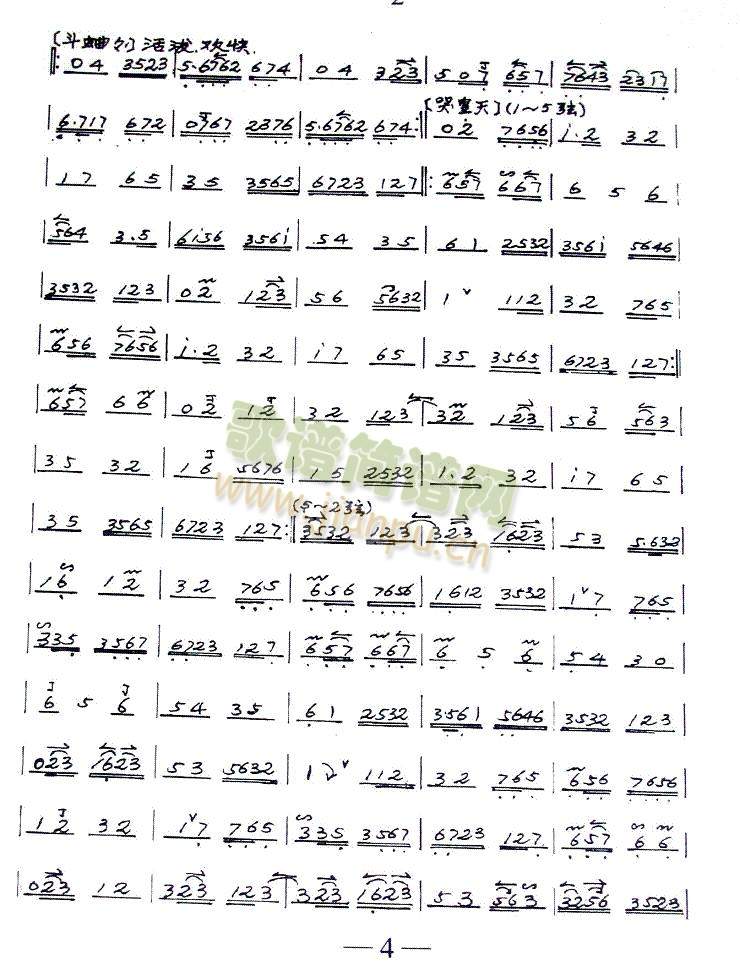 [斗曲的]活泼.欢快.
‖: 0 4 3523 | 5.6762 674 | 0 4 323 | 507 657 | 7643 2317 |
[哭皇天](1~5弦)
6.717 672 | 0767 2376 | 5.6762 674 :‖ 02 7656 | i.2 32 |
| 17 65 | 35 3565 | 6723 127 ‖: 657 667 | 6 5 6 |
| 564 3.5 | 6i56 356i | 54 35 | 61 2532 | 356i 5646 |
| 3532 123 | 02 123 | 56 5632 | 1ˇ 112 | 32 765 |
| 656 7656 | i.2 32 | i7 65 | 35 3565 | 6723 127 :‖
| 657 66 | 02 12 | 32 123 | 32 123 | 56 563 |
| 35 32 | 16 5676 | 15 2532 | 1.2 32 | i7 65 |
(5~2弦)
| 35 3565 | 6723 127 :‖ 3532 123 | 323 1623 | 53 5.632 |
| 16 12 | 32 765 | 656 7656 | 1612 3532 | 1ˇ7 765 |
| 335 3567 | 6723 127 | 657 667 | 6 5 6 | 54 30 |
| 6 5 6 | 54 35 | 61 2532 | 3561 5646 | 3532 123 |
| 023 1623 | 53 5632 | 1ˇ 112 | 32 765 | 656 7656 |
| 12 32 | 1ˇ7 765 | 335 3567 | 6723 127 | 657 66 |
| 023 12 | 323 123 | 323 1623 | 53 563 | 3256 3523 |
歌谱简谱网
www.jianpu.cn
— 4 —